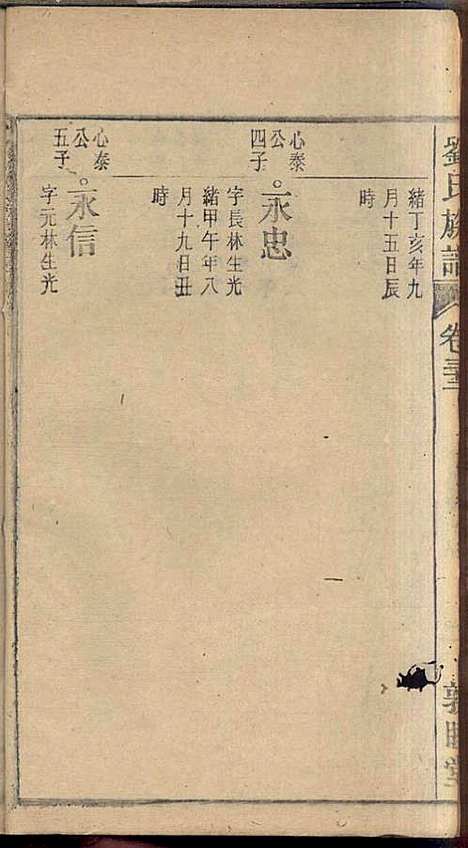 劉氏族譜
卷三三
敦睦堂
緒丁亥年九
月十五日辰
時
心泰
公
四子
永忠
字長林生光
緒甲午年八
月十九日丑
時
心泰
公
五子
永信
字元林生光